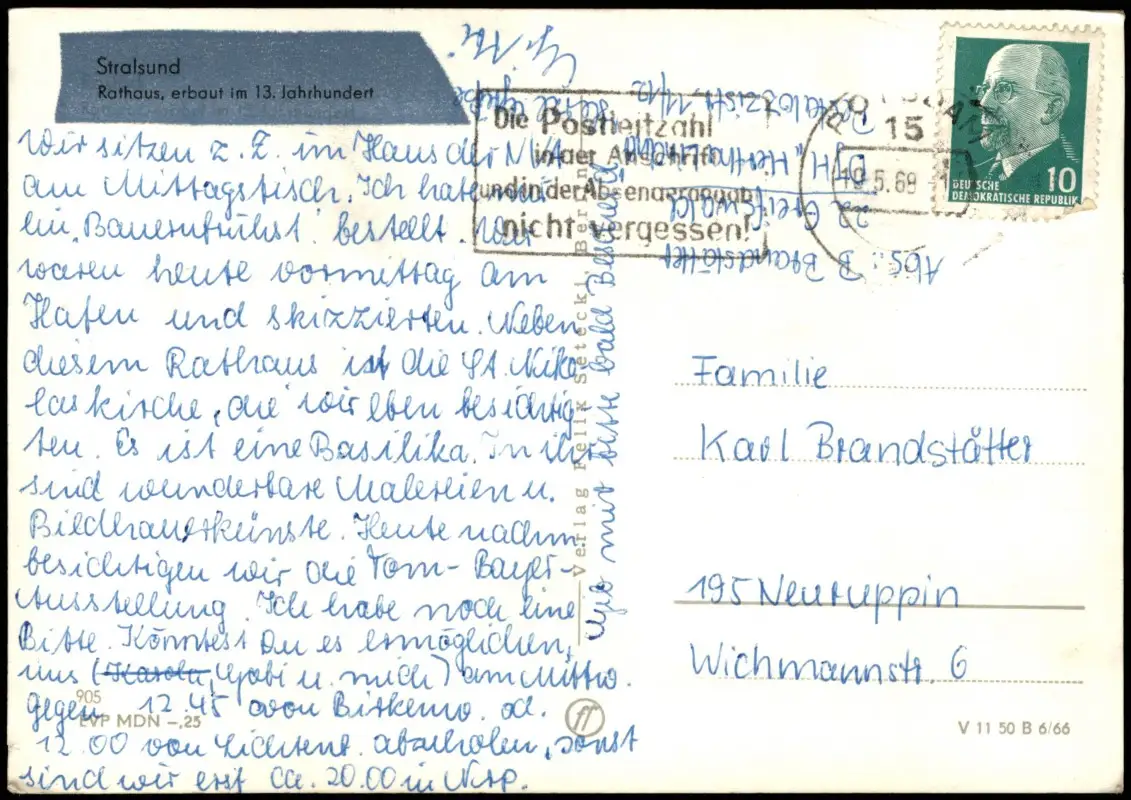 Stralsund
Rathaus, erbaut im 13. Jahrhundert
Wir sitzen z. Z. im Haus der NVA
am Mittagstisch. Ich habe mir
ein „Bauernfrühst." bestellt. Wir
waren heute vormittag am
Hafen und skizzierten. Neben
diesem Rathaus ist die St. Niko
laskirche, die wir eben besichtig
ten. Es ist eine Basilika. In ihr
sind wunderbare Malereien u.
Bildhauerkünste. Heute nachm.
besichtigen wir die Tom-Bayer-
Ausstellung. Ich habe noch eine
Bitte. Könntest Du es ermöglichen,
uns (Karola, Gabi u. mich) am Mittw.
gegen 12.45 von Birkenw. od.
12.00 von Lichtenb. abzuholen, sonst
sind wir erst ca. 20.00 in Nrp.
905
EVP MDN –,25
Gib mir bitte bald Bescheid!
Verlag Felix Setecki, Berlin
ff
Die Postleitzahl
in der Anschrift
und in der Absenderangabe
nicht vergessen!
POTSDAM
15
19.5.69
DEUTSCHE
DEMOKRATISCHE REPUBLIK
10
Abs.: B. Brandstätter
22 Greifswald
Familie
Karl Brandstätter
195 Neuruppin
Wichmannstr. 6
V 11 50 B 6/66